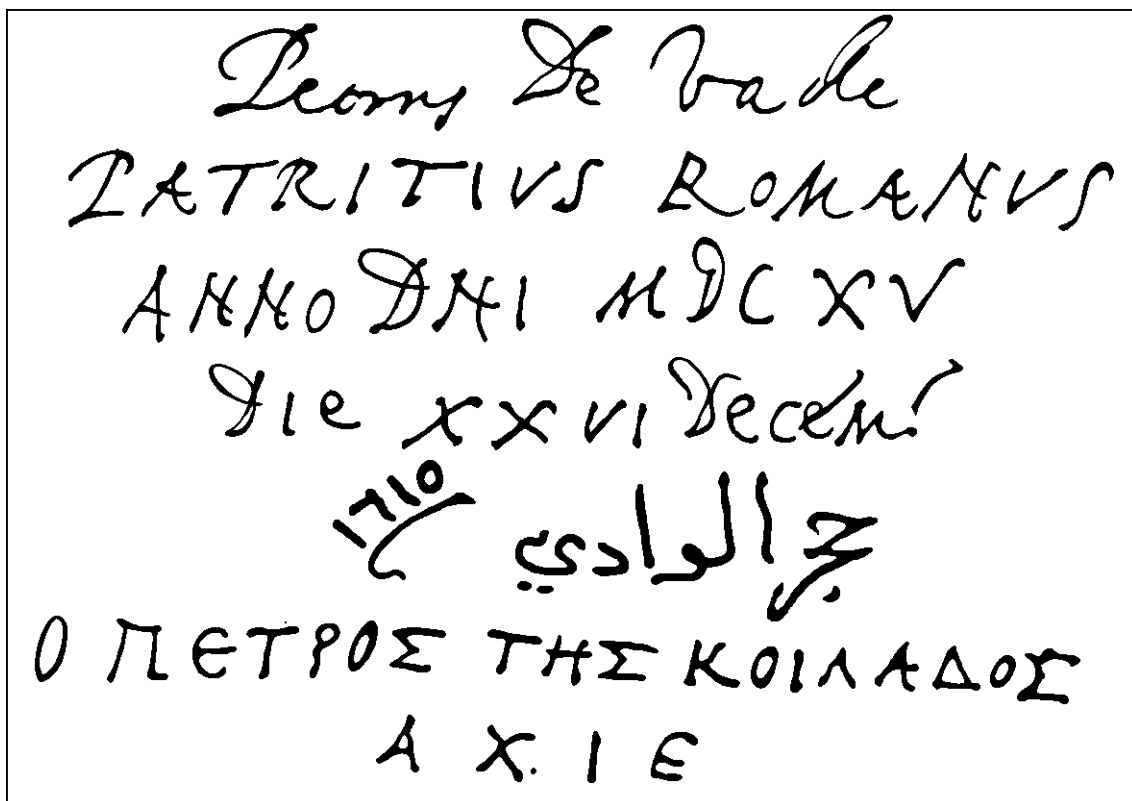 Petrus De Valle
PATRITIVS ROMANVS
ANNO DNI MDCXV
Die XXVI Decem̄
حجر الوادي ١٦١٥
Ο ΠΕΤΡΟΣ ΤΗΣ ΚΟΙΛΑΔΟΣ
Α Χ. Ι Ε